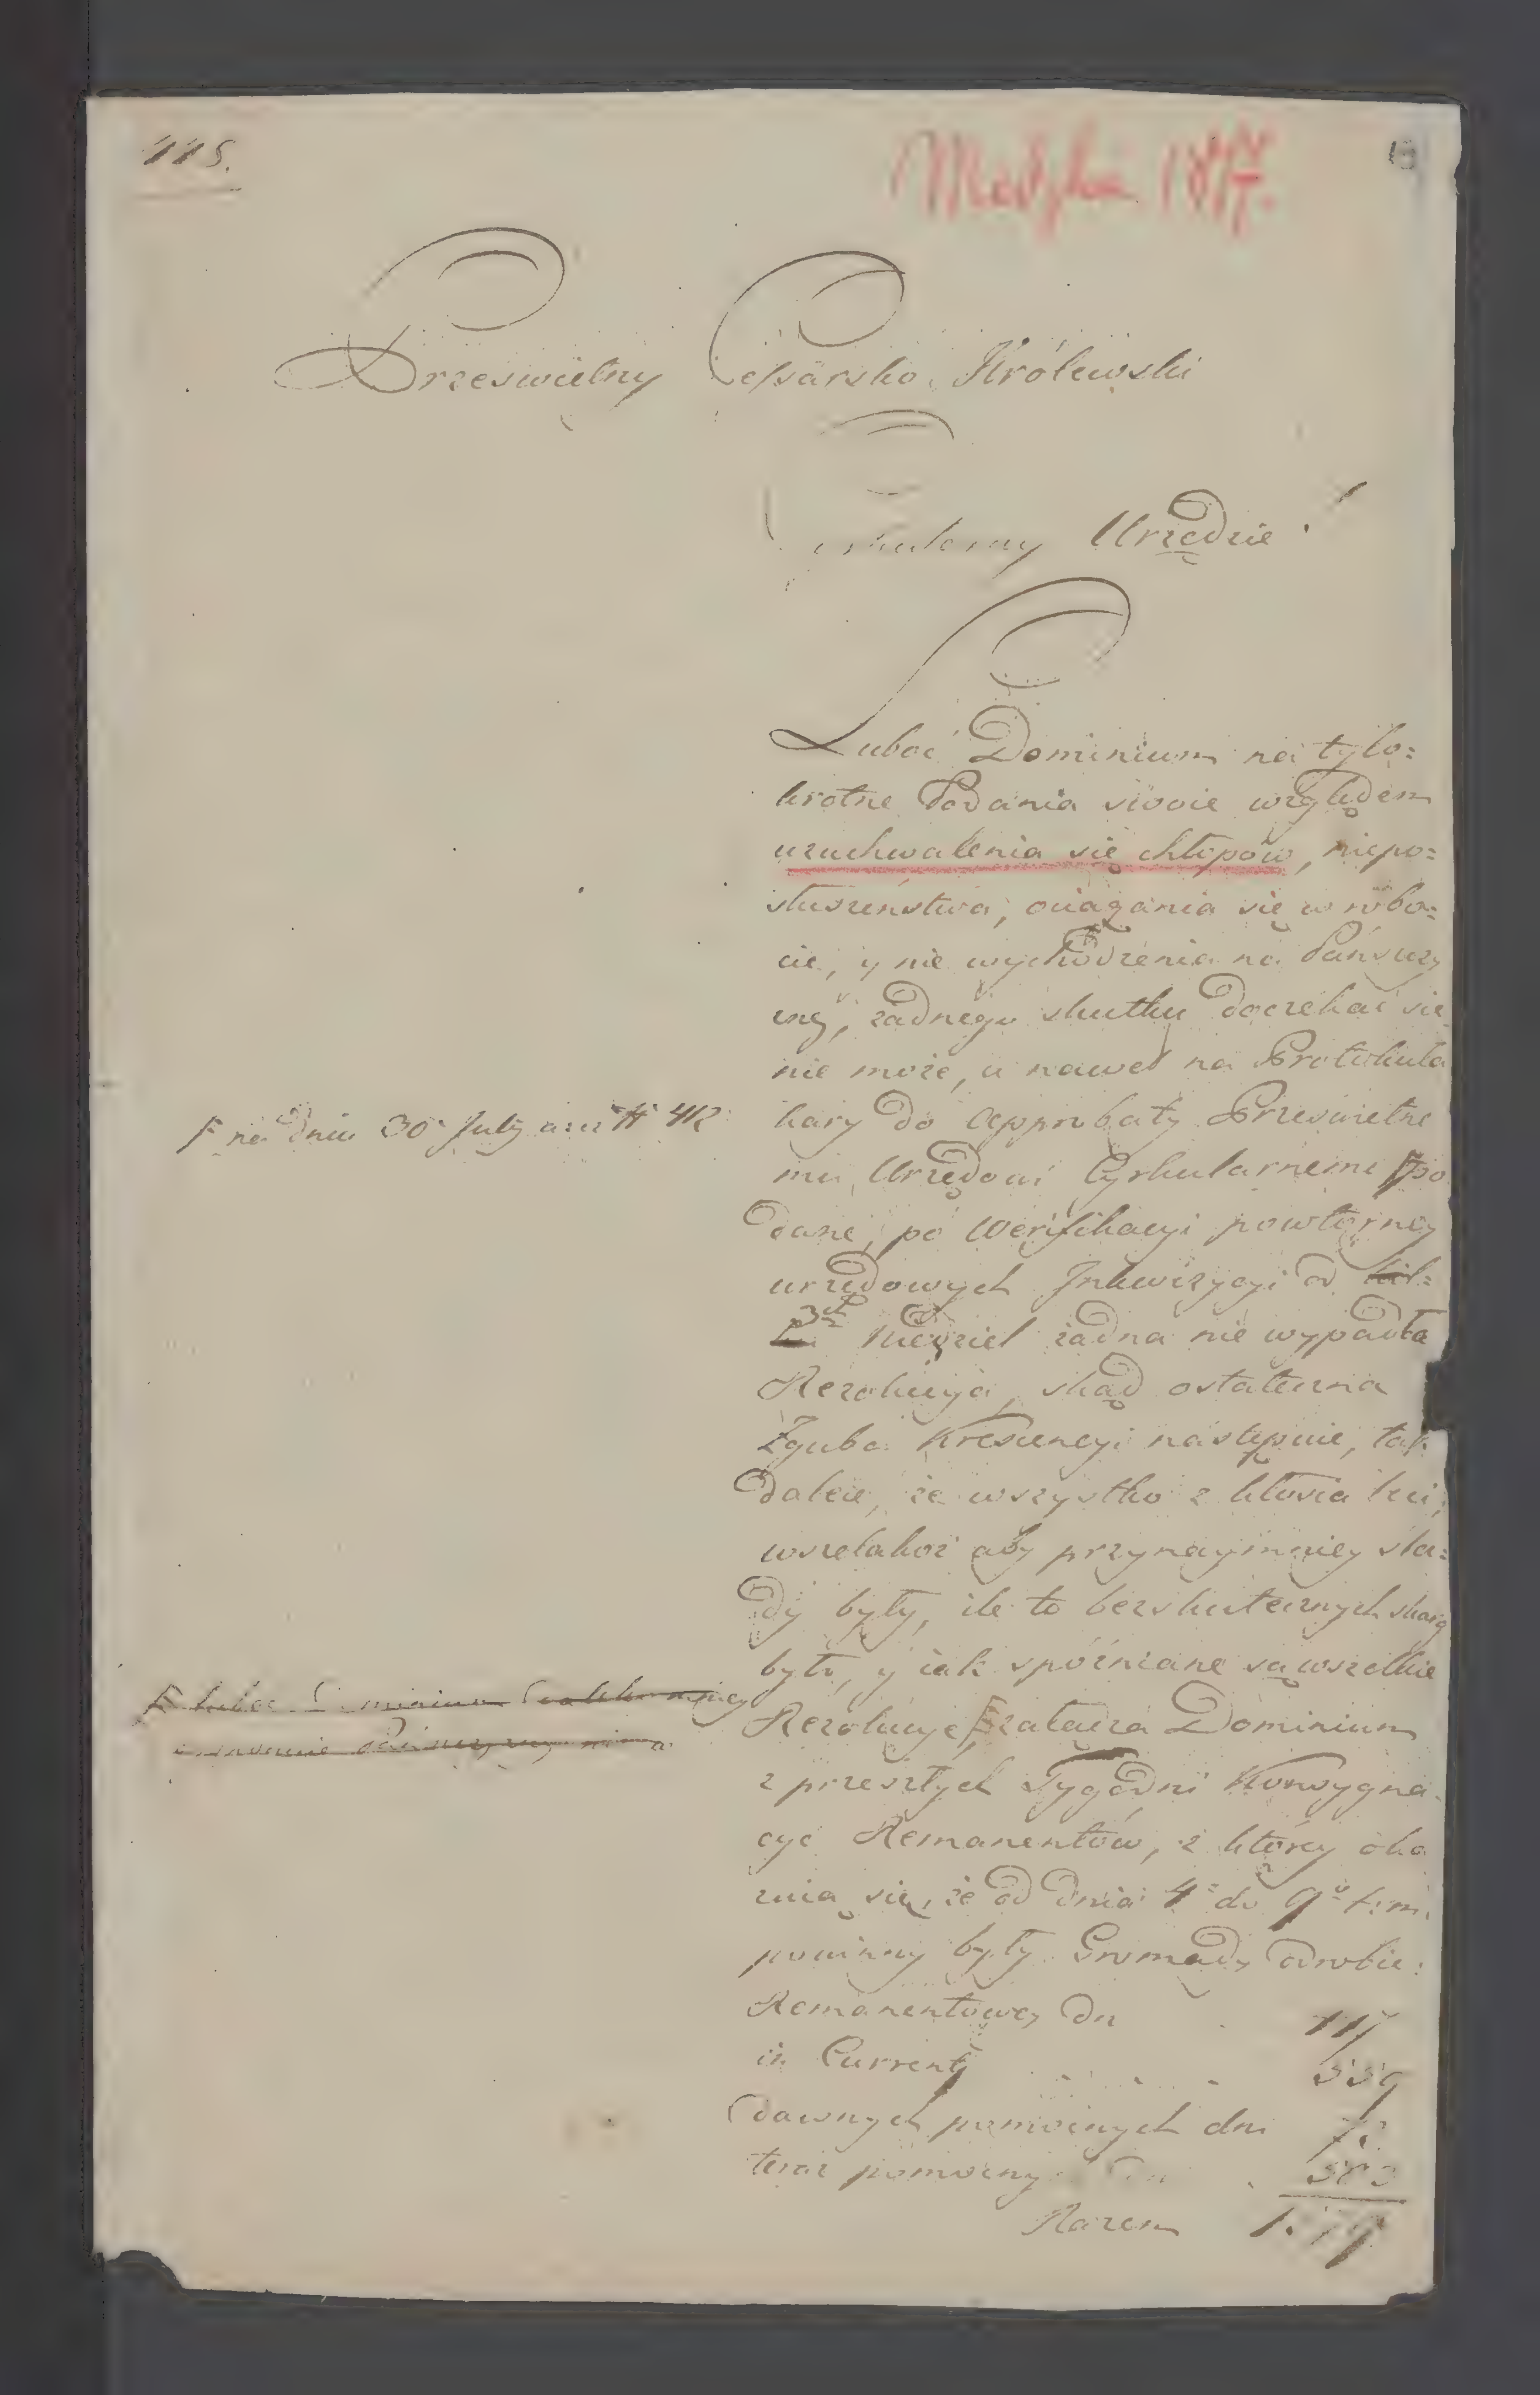 115.
Medyka 18
Prześwietny Cesarsko Królewski
Urzędzie
Luboć Dominium na tylo=
krotne Podania swoie względem
uzuchwalenia się chłopów, niepo=
słuszeństwa, ociągania się w robo=
cie, y nie wychodzenia na Pańszczy
znę, żadnego skutku doczekać się
nie może, a nawet na Protokuła
kary do approbaty Prześwietne
mu Urzędowi Cyrkularnemu
F na dniu 30 July # 412
po
dane, po Weryfikacyi powtórney
urzędowych Inkwizycyi od
3ch Niedziel żadna nie wypadła
Rezolucya, skąd ostateczna
Zguba Krescencyi nastąpuie, tak
daleie, że wszystko z kłosia leci,
wszelakoż aby przynaymniey śla=
dy były, ile to bezskutecznych skarg
było, y iak spóźniane są wszelkie
Rezolucye, załącza Dominium
F luboc Dominium
z przeszłych Tygodni Konsygna
cyę Remanentów, z który oka
zuia się, że od dnia 4 do 9º t. m.
powinny były Gromady odrobić:
Remanentowey dni 117
in Currenti 559
dawnych pomocnych dni
teraz pomocny
Razem